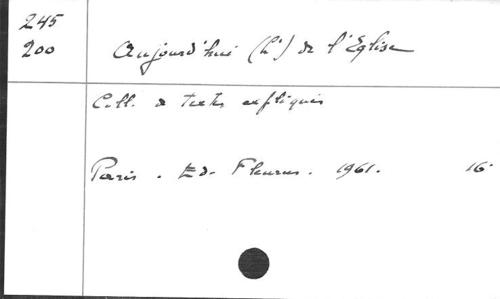 245
200
Aujourd'hui (L') de l'Eglise
Coll. de textes expliqués
Paris. Ed. Fleurus. 1961. 16°